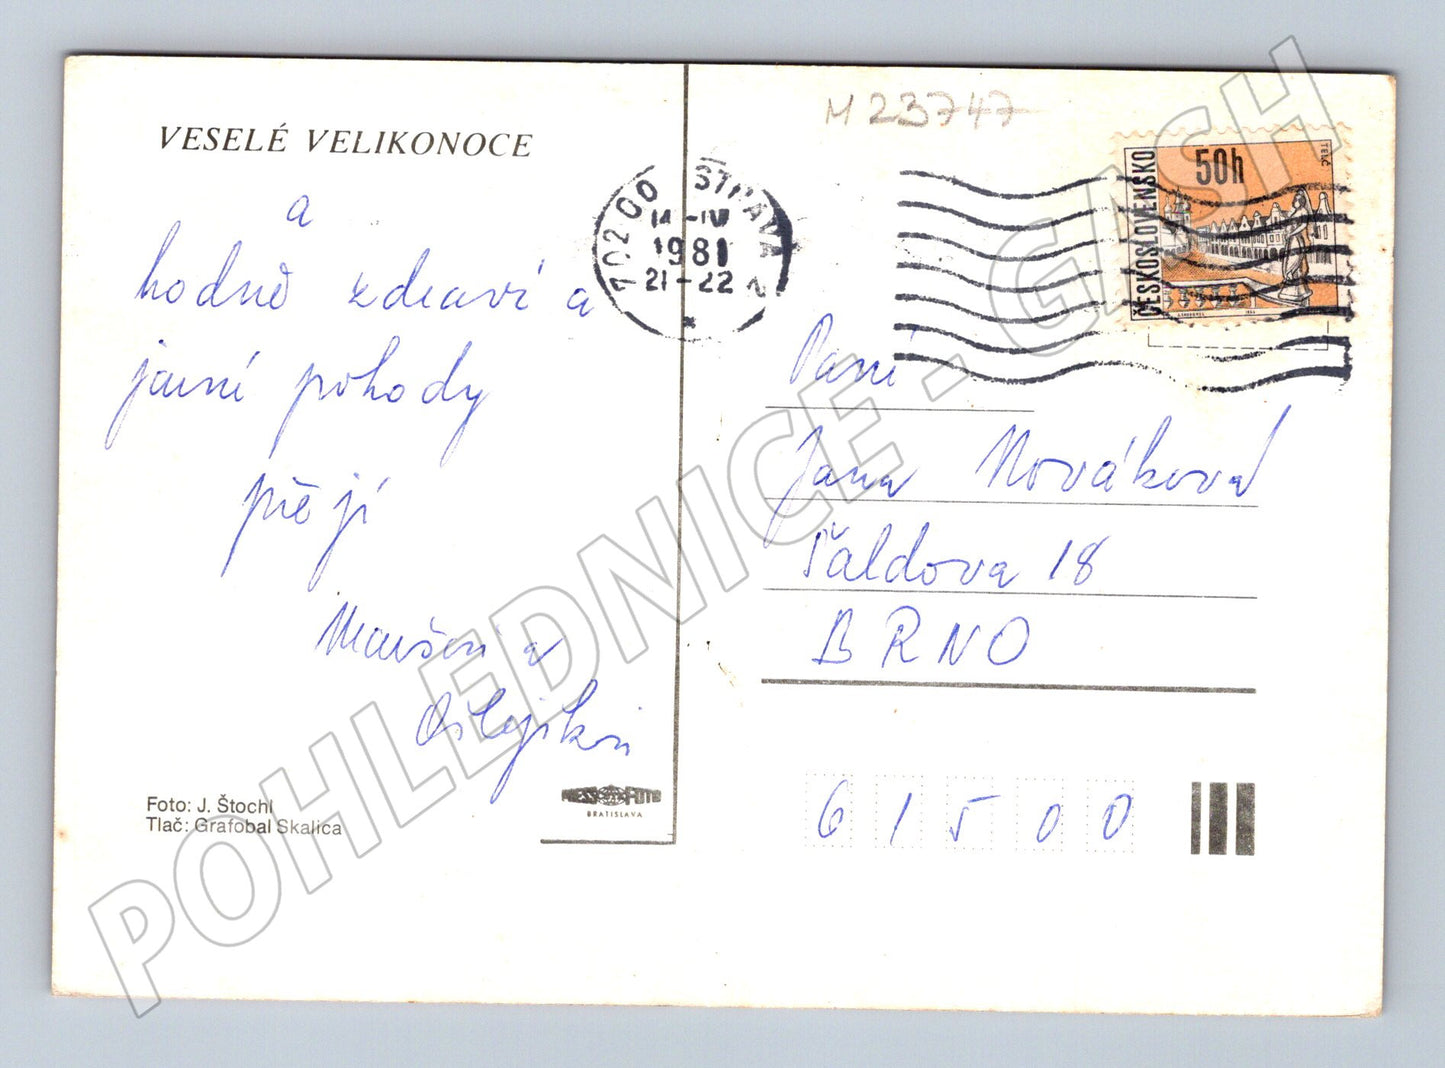 VESELÉ VELIKONOCE
a
hodně zdraví a
jarní pohody
přejí
a
Foto: J. Štochl
Tlač: Grafobal Skalica
PRESSFOTO
BRATISLAVA
M 23747
702 00 OSTRAVA 2
14 -IV
1981
21-22
ČESKOSLOVENSKO
50h
TELČ
Paní
Jana Nováková
Šaldova 18
BRNO
6 1 5 0 0
POHLEDNICE - GASH